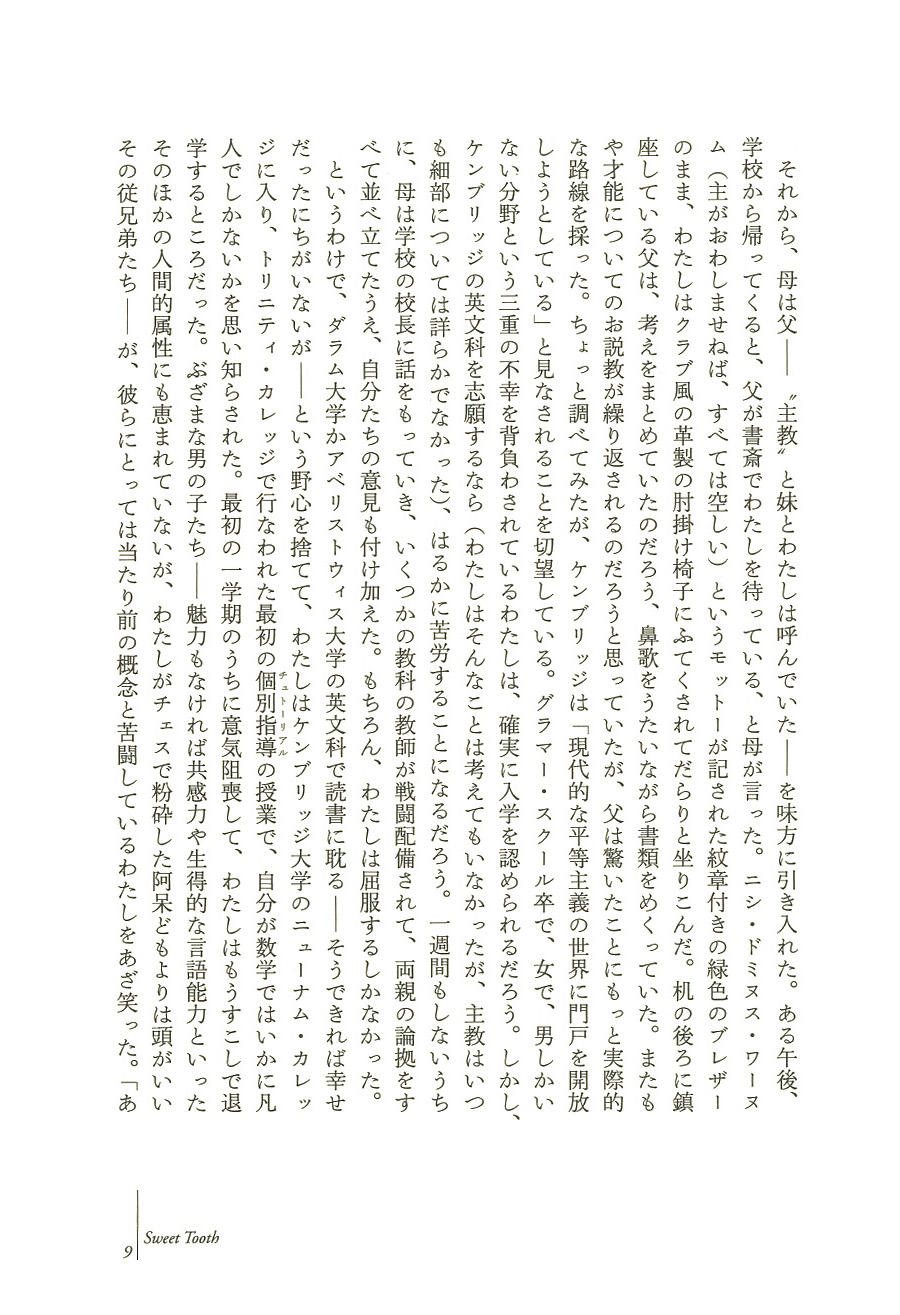 それから、母は父――〝主教〟と妹とわたしは呼んでいた――を味方に引き入れた。ある午後、
学校から帰ってくると、父が書斎でわたしを待っている、と母が言った。ニシ・ドミヌス・ワーヌ
ム（主がおわしませねば、すべては空しい）というモットーが記された紋章付きの緑色のブレザー
のまま、わたしはクラブ風の革製の肘掛け椅子にふてくされてだらりと坐りこんだ。机の後ろに鎮
座している父は、考えをまとめていたのだろう、鼻歌をうたいながら書類をめくっていた。またも
や才能についてのお説教が繰り返されるのだろうと思っていたが、父は驚いたことにもっと実際的
な路線を採った。ちょっと調べてみたが、ケンブリッジは「現代的な平等主義の世界に門戸を開放
しようとしている」と見なされることを切望している。グラマー・スクール卒で、女で、男しかい
ない分野という三重の不幸を背負わされているわたしは、確実に入学を認められるだろう。しかし、
ケンブリッジの英文科を志願するなら（わたしはそんなことは考えてもいなかったが、主教はいつ
も細部については詳らかでなかった）、はるかに苦労することになるだろう。一週間もしないうち
に、母は学校の校長に話をもっていき、いくつかの教科の教師が戦闘配備されて、両親の論拠をす
べて並べ立てたうえ、自分たちの意見も付け加えた。もちろん、わたしは屈服するしかなかった。
というわけで、ダラム大学かアベリストウィス大学の英文科で読書に耽る――そうできれば幸せ
だったにちがいないが――という野心を捨てて、わたしはケンブリッジ大学のニューナム・カレッ
ジに入り、トリニティ・カレッジで行なわれた最初の個別指導チュートーリアルの授業で、自分が数学ではいかに凡
人でしかないかを思い知らされた。最初の一学期のうちに意気阻喪して、わたしはもうすこしで退
学するところだった。ぶざまな男の子たち――魅力もなければ共感力や生得的な言語能力といった
そのほかの人間的属性にも恵まれていないが、わたしがチェスで粉砕した阿呆どもよりは頭がいい
その従兄弟たち――が、彼らにとっては当たり前の概念と苦闘しているわたしをあざ笑った。「あ
Sweet Tooth
9